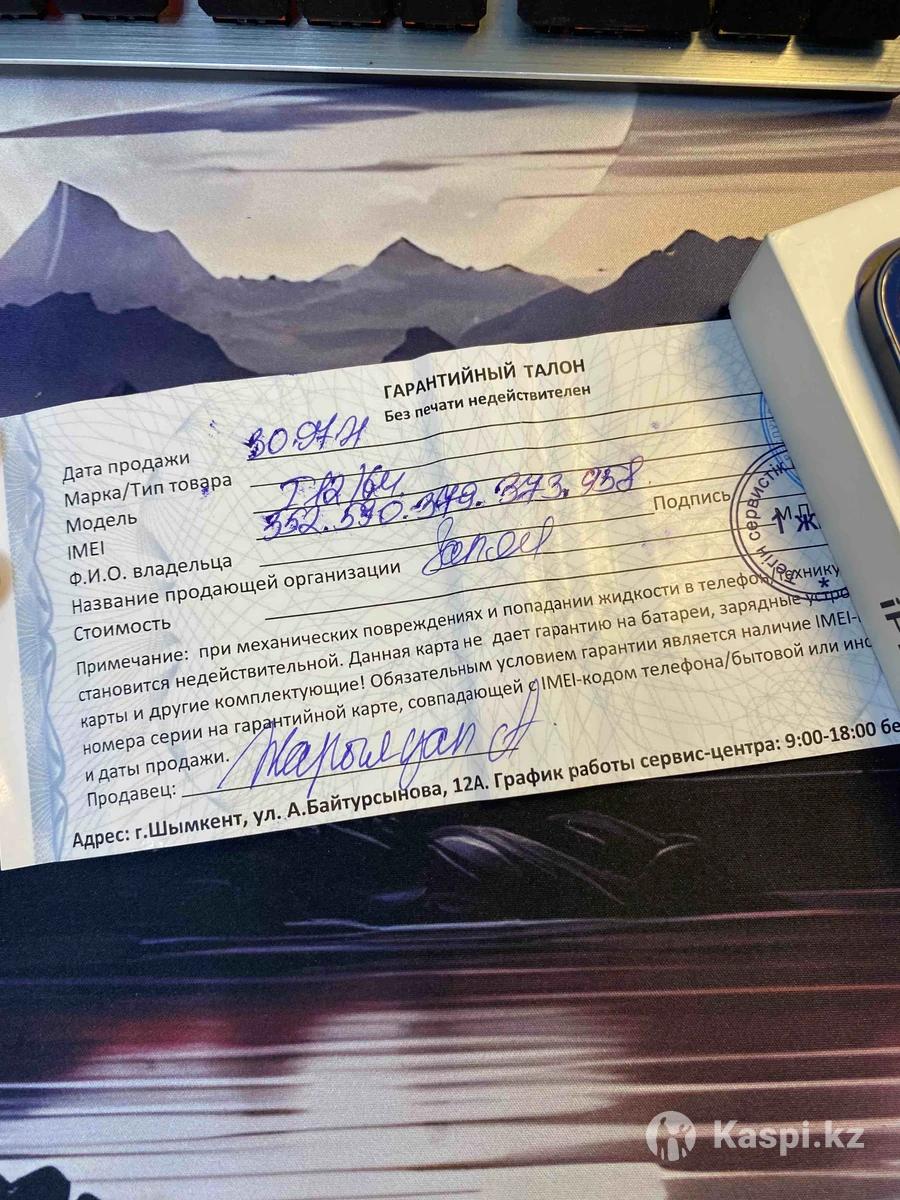 ГАРАНТИЙНЫЙ ТАЛОН
Без печати недействителен
Дата продажи
Марка/Тип товара
Модель
IMEI 352.590.349.373.958
Ф.И.О. владельца Подпись
Название продающей организации
Стоимость
М.П.
сервистік
Примечание: при механических повреждениях и попадании жидкости в телефон/технику
становится недействительной. Данная карта не дает гарантию на батареи, зарядные устро
карты и другие комплектующие! Обязательным условием гарантии является наличие IMEI-
номера серии на гарантийной карте, совпадающей с IMEI-кодом телефона/бытовой или
и даты продажи.
Продавец:
Адрес: г.Шымкент, ул. А.Байтурсынова, 12А. График работы сервис-центра: 9:00-18:00 бе
Kaspi.kz